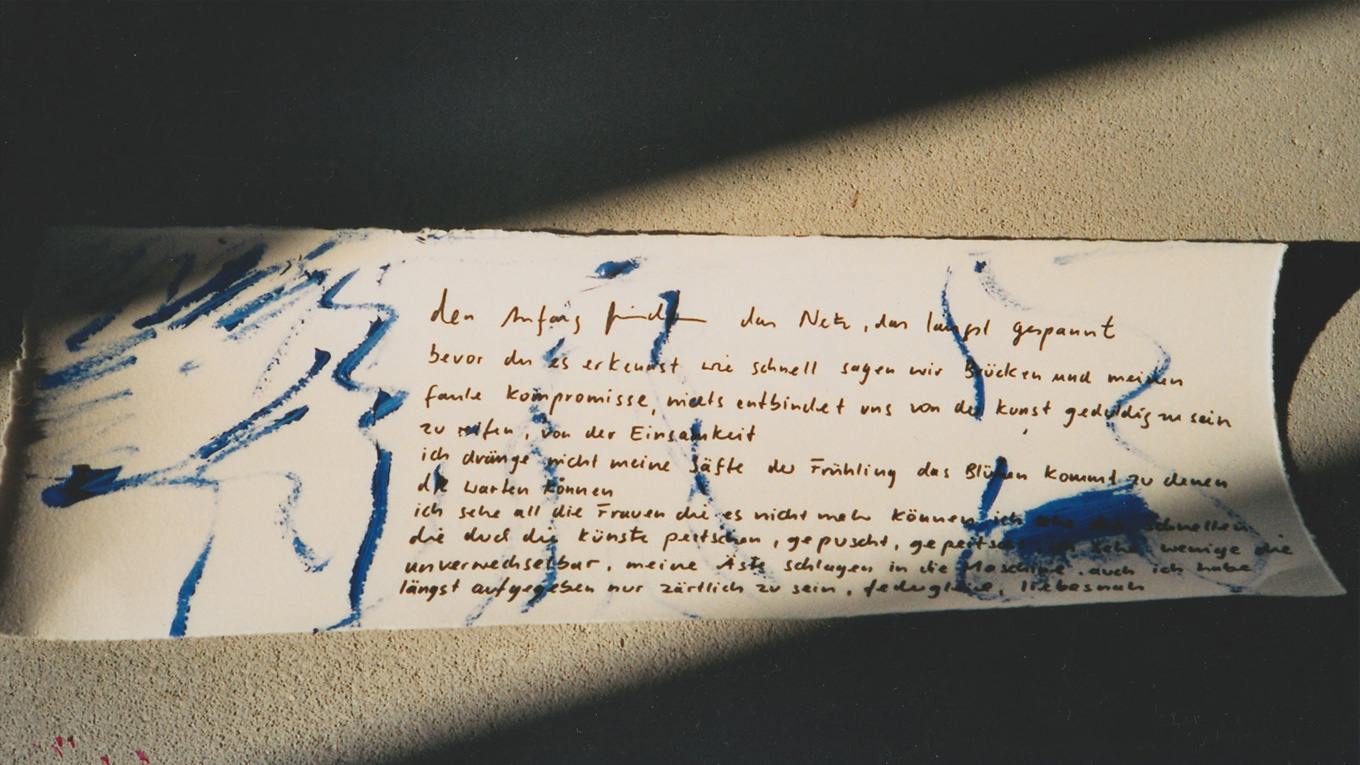 den Anfang finden das Netz, das längst gespannt
bevor du es erkennst wie schnell sagen wir Brücken und meinen
faule Kompromisse, nichts entbindet uns von der Kunst geduldig zu sein
zu reifen, von der Einsamkeit
ich dränge nicht meine Säfte der Frühling das Blühen kommt zu denen
die warten können
ich sehe all die Frauen die es nicht mehr können, ich sehe die schnellen
die durch die Künste peitschen, gepuscht, gepeitscht ich sehe wenige die
unverwechselbar, meine Äste schlagen in die Maschine, auch ich habe
längst aufgegeben nur zärtlich zu sein, liebesnah